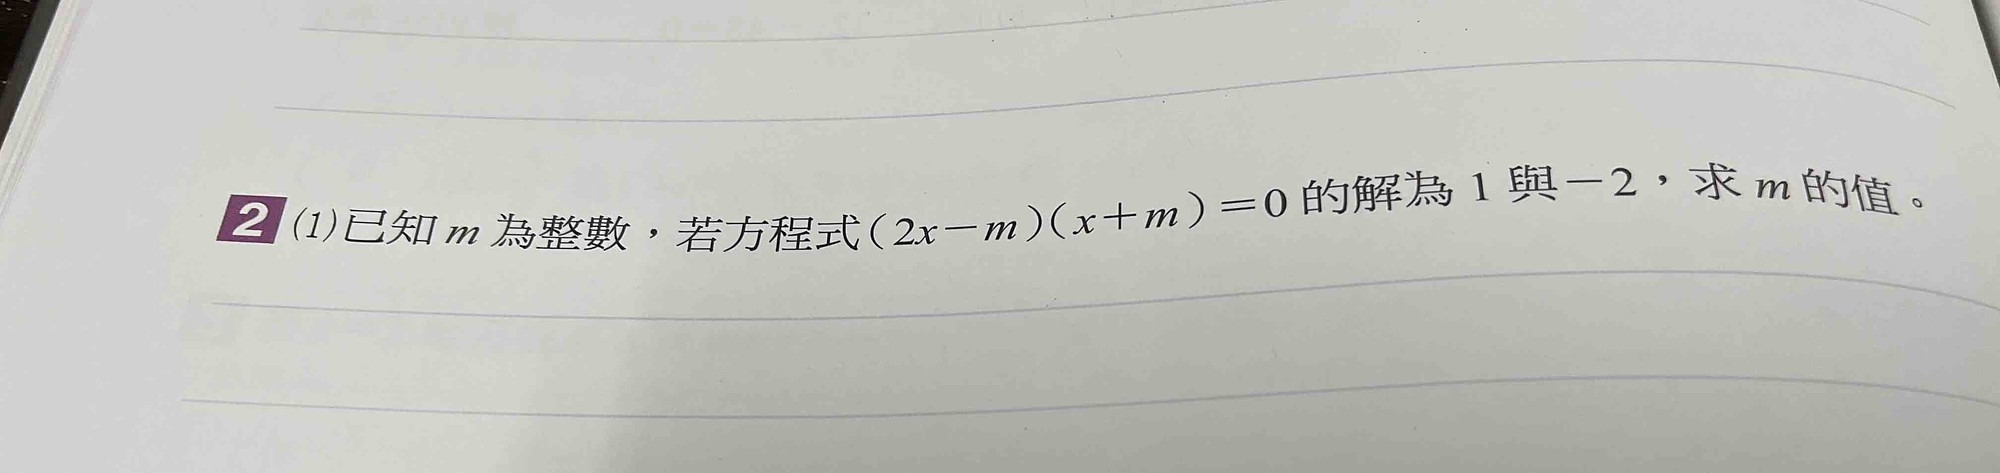 2 (1)已知 m 為整數，若方程式(2x－m)(x＋m)＝0 的解為 1 與－2，求 m 的值。